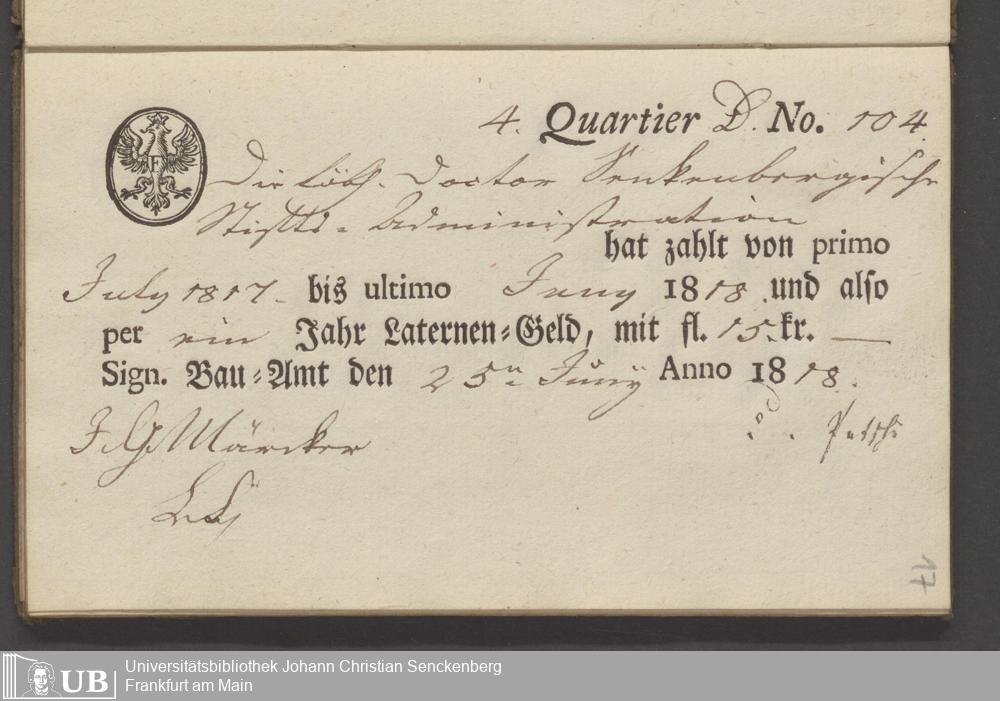 4. Quartier D. No. 104.
F
Die Löbl. Doctor Senkenbergische
Stiftts-Administration
hat zahlt von primo
July 1817. bis ultimo Juny 1818. und also
per ein Jahr Laternen-Geld, mit fl. 15. kr.
Sign. Bau-Amt den 25n. Juny Anno 1818.
J. G. Märcker
17
Universitätsbibliothek Johann Christian Senckenberg
Frankfurt am Main
UB